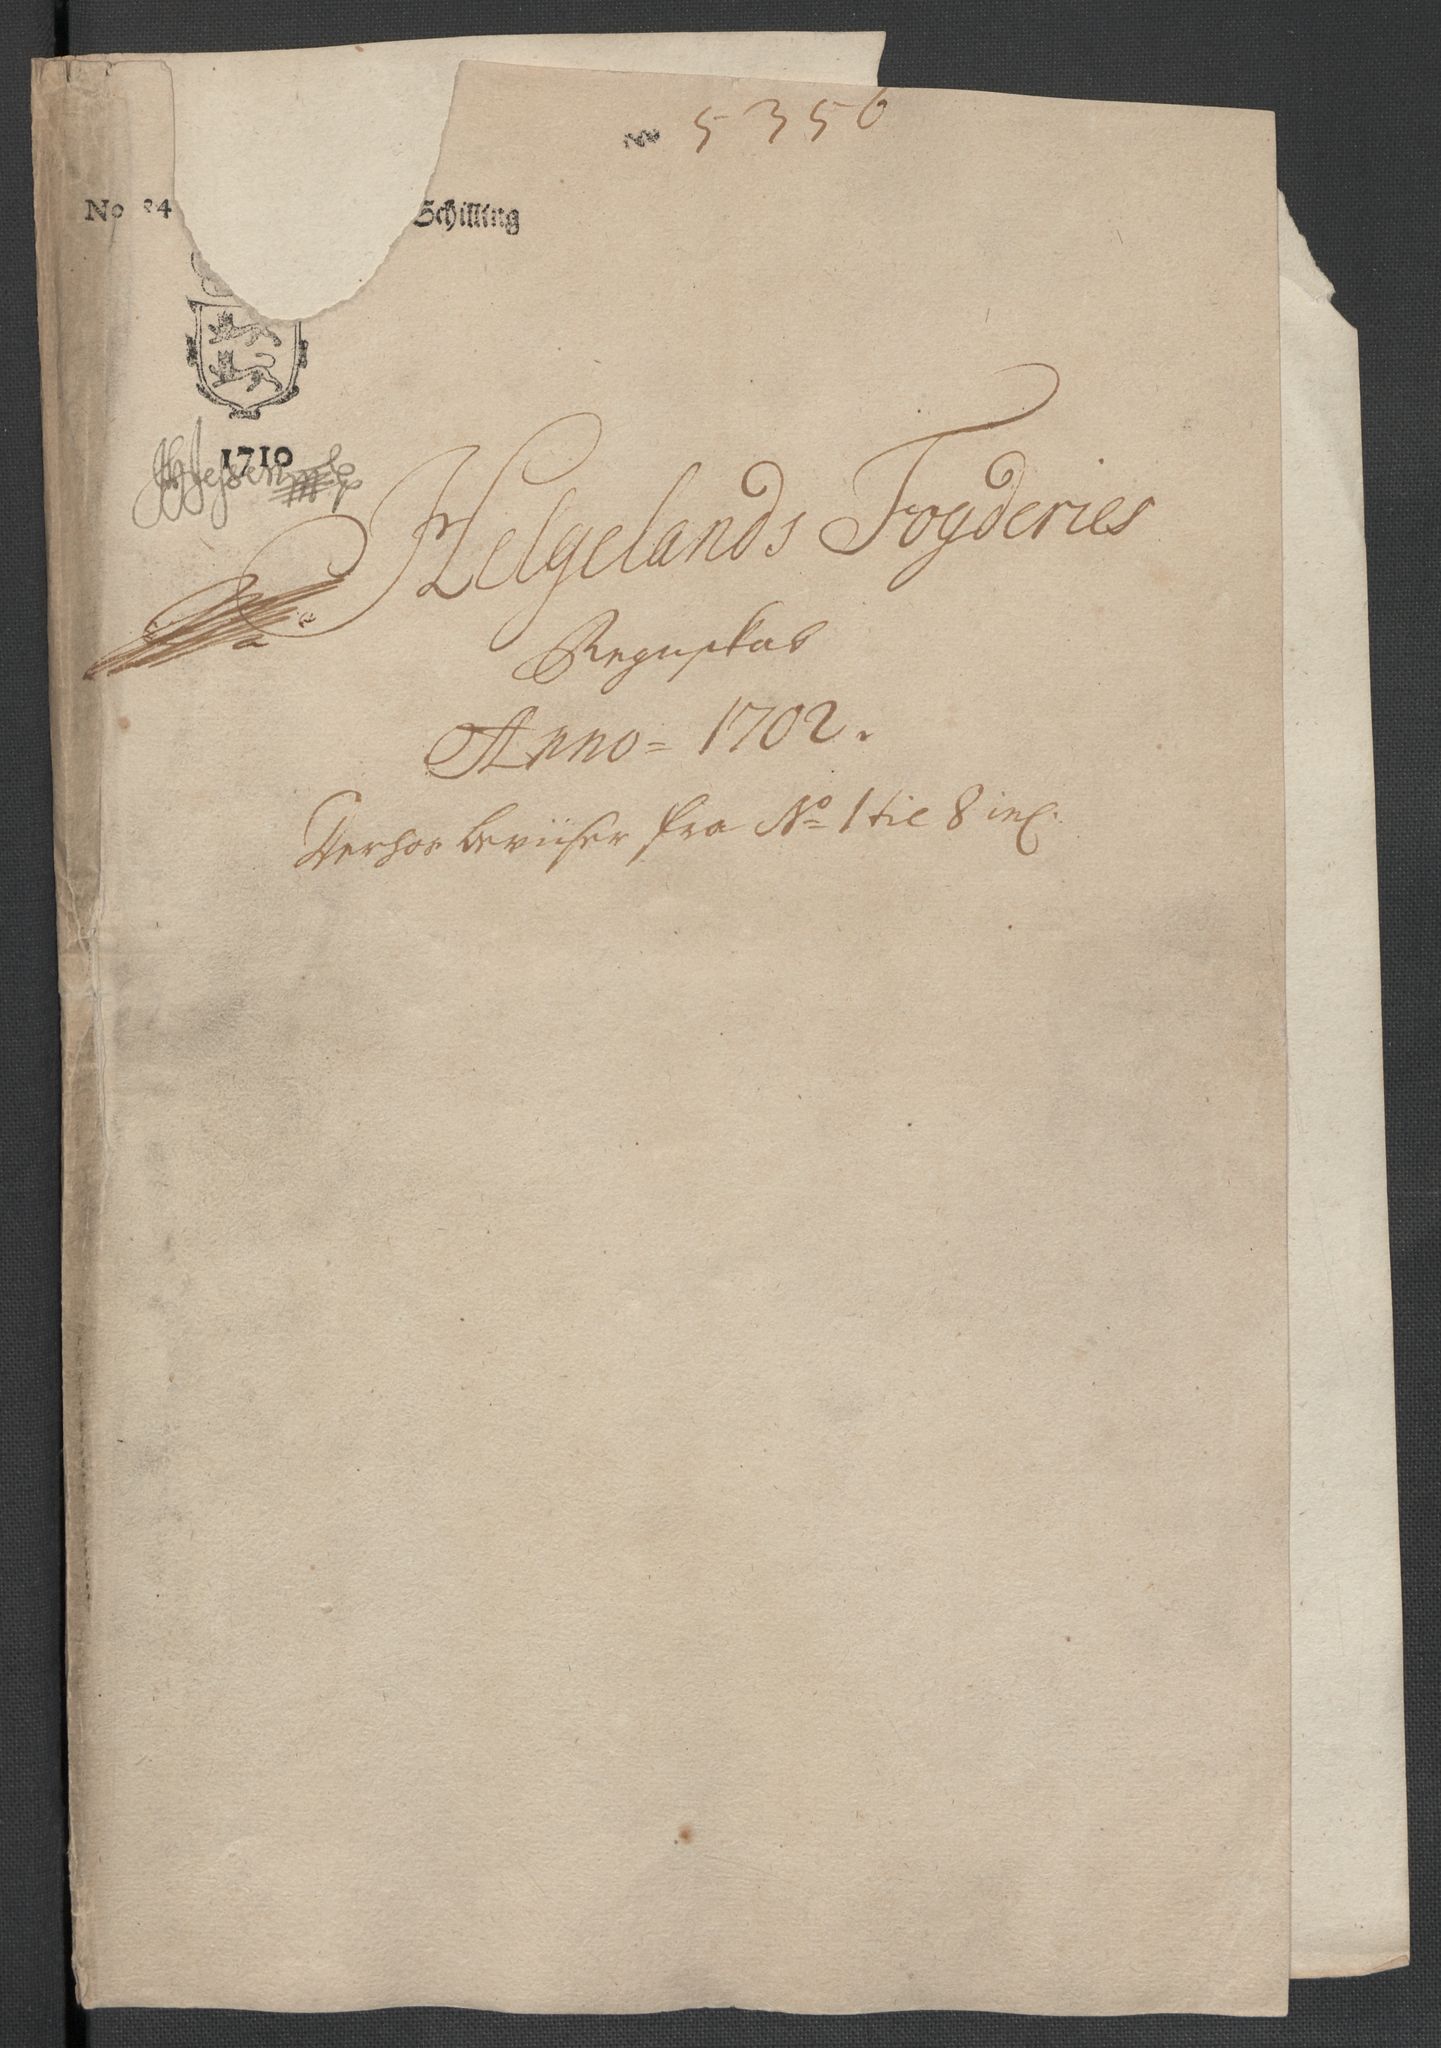 5356
No 84 Schilling
1710
Helgelands Fogderies
Regnskab
Anno = 1702.
Derhos beviiser fra No 1 til 8 incl: